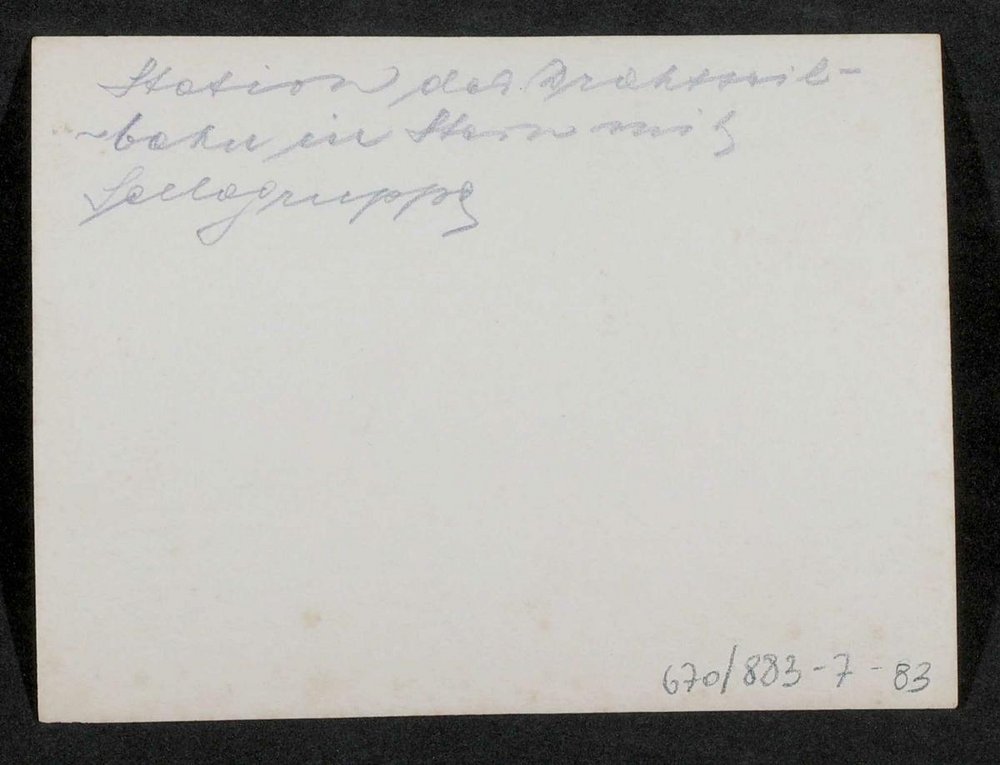 Station der Drahtseil-
bahn in Stern mit
Sellagruppe
670/883-7-83